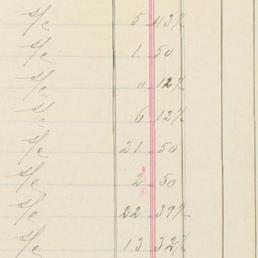 S/c 5 43½
S/c 1 50
S/c 0 12½
S/c 6 12½
S/c 21 50
S/c 2 50
S/c 22 39½
S/c 13 32½